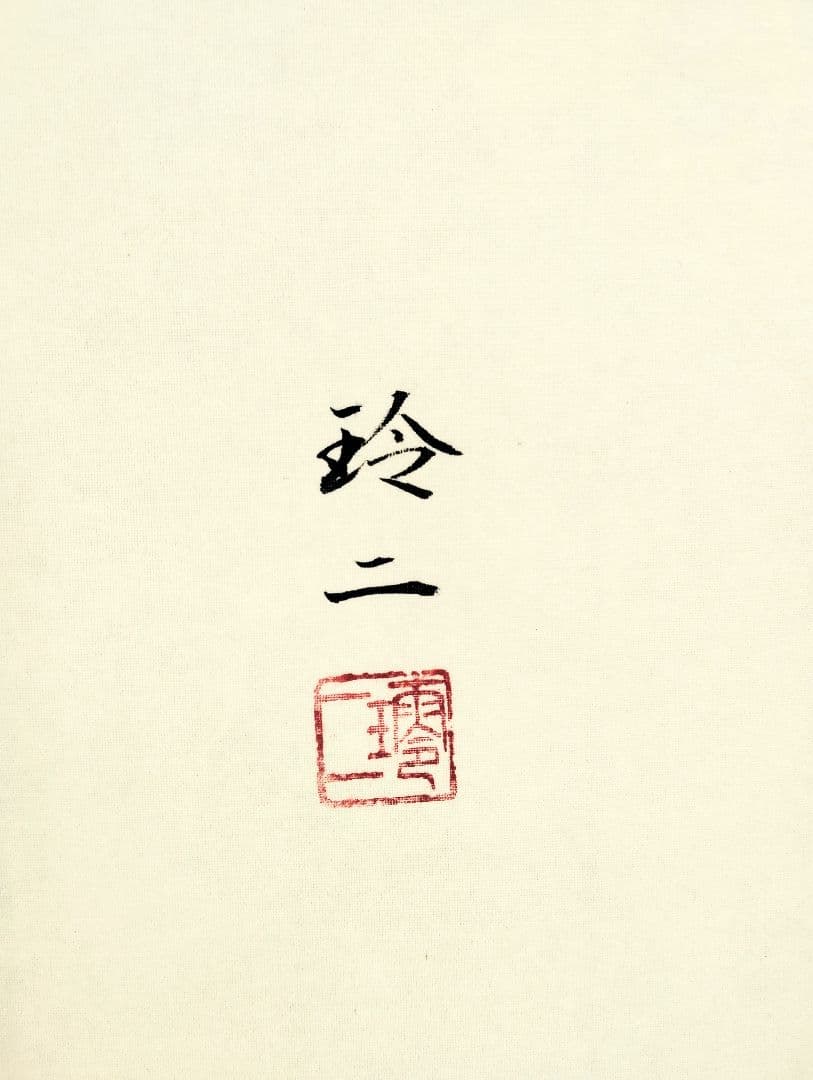 玲
二
玲二